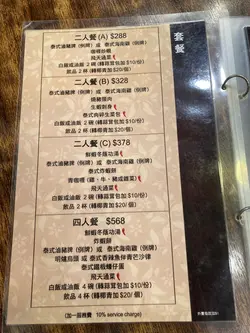 套餐
二人餐 (A) $288
泰式油豬臂 (例牌) 或 泰式海南雞 (例牌)
咖喱炒蝦
飛天通菜
白飯或油飯 2 碗 (轉蒜茸包加 $10/份)
飲品 2 杯 (轉椰青加 $20/個)
二人餐 (B) $328
泰式油豬臂 (例牌) 或 泰式海南雞 (例牌)
燒豬頸肉
生蝦刺身
泰式肉碎生菜包
白飯或油飯 2 碗 (轉蒜茸包加 $10/份)
飲品 2 杯 (轉椰青加 $20/個)
二人餐 (C) $378
鮮蝦冬蔭功湯
泰式油豬臂 (例牌) 或 泰式海南雞 (例牌)
泰式炸蝦餅
青咖喱 (雞、牛、豬或雜菜)
飛天通菜
白飯或油飯 2 碗 (轉蒜茸包加 $10/份)
飲品 2 杯 (轉椰青加 $20/個)
四人餐 $568
鮮蝦冬蔭功湯
炸蝦餅
泰式油豬臂 (例牌) 或 泰式海南雞 (例牌)
明爐烏頭 或 泰式香辣魚伴青芒沙律
泰式鐵板蠔仔蛋
飛天通菜
白飯或油飯 4 碗 (轉蒜茸包加 $10/份)
飲品 4 杯 (轉椰青加 $20/個)
(加一服務費 10% service charge)